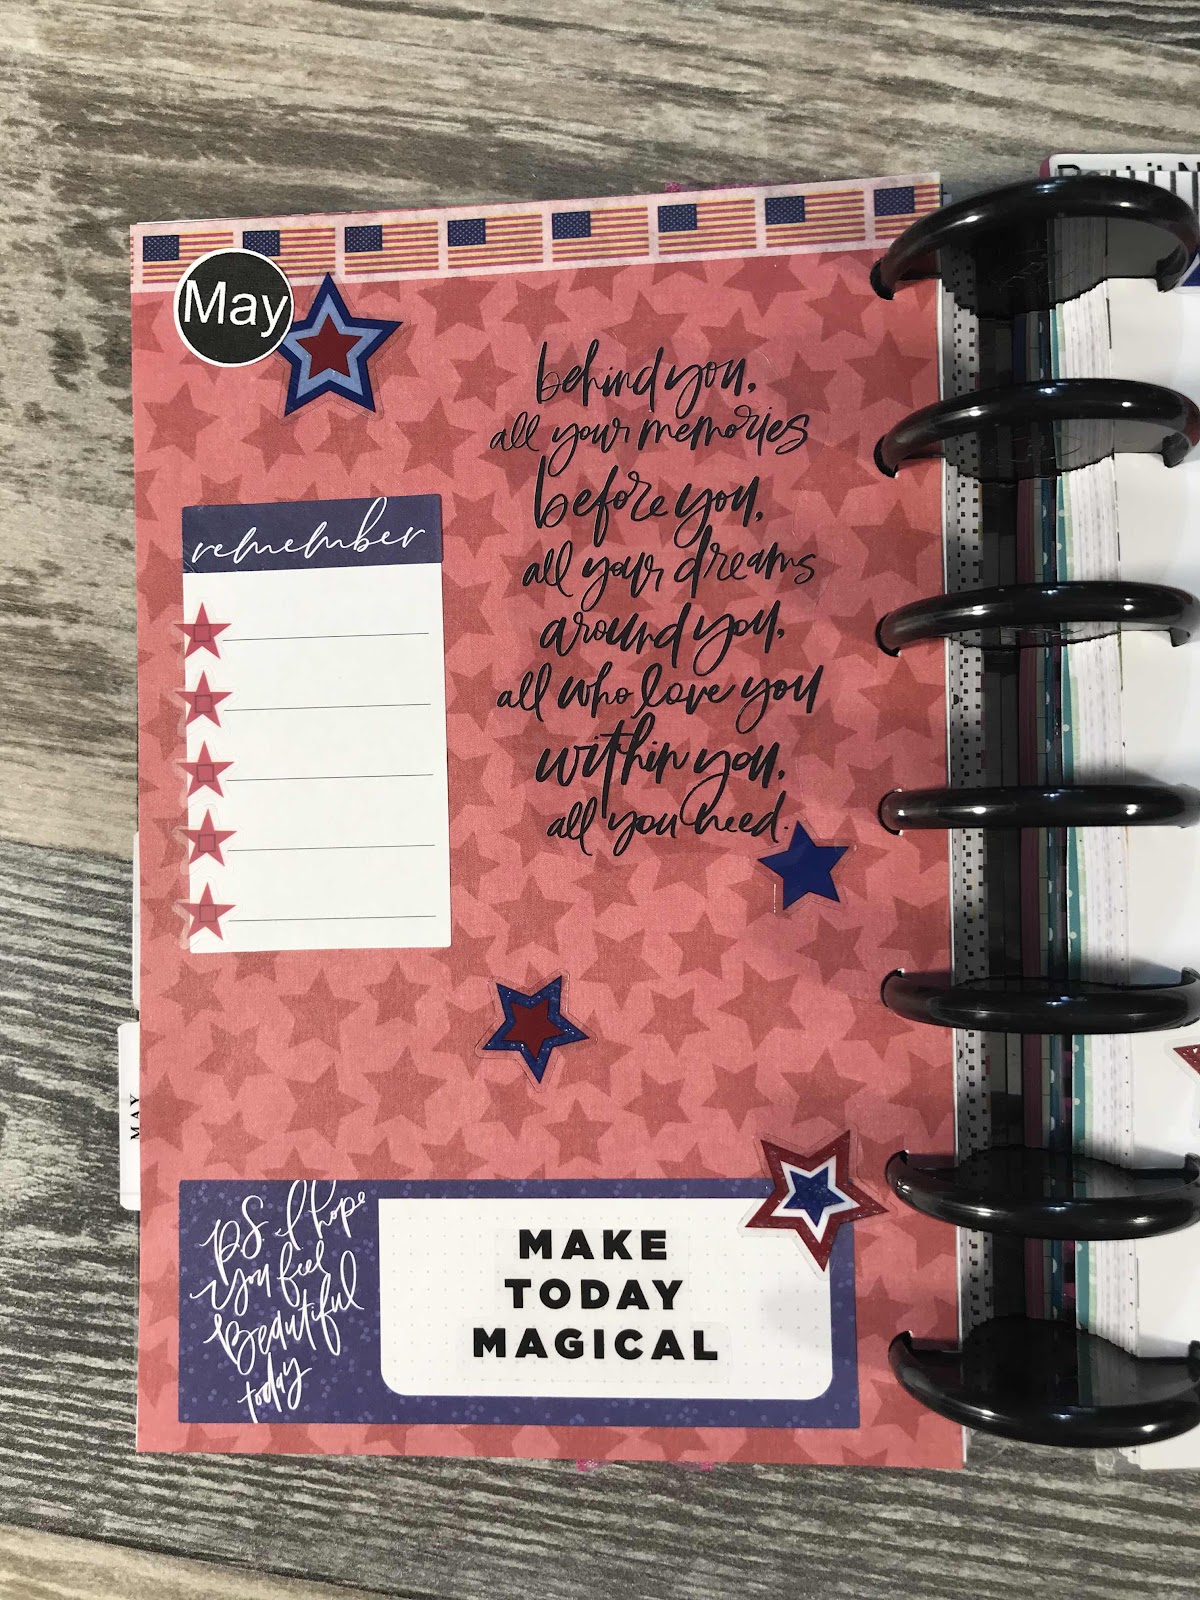 May
behind you,
all your memories
before you,
all your dreams
around you,
all who love you
within you,
all you need.
remember
MAY
PS I hope
you feel
Beautiful
today
MAKE
TODAY
MAGICAL